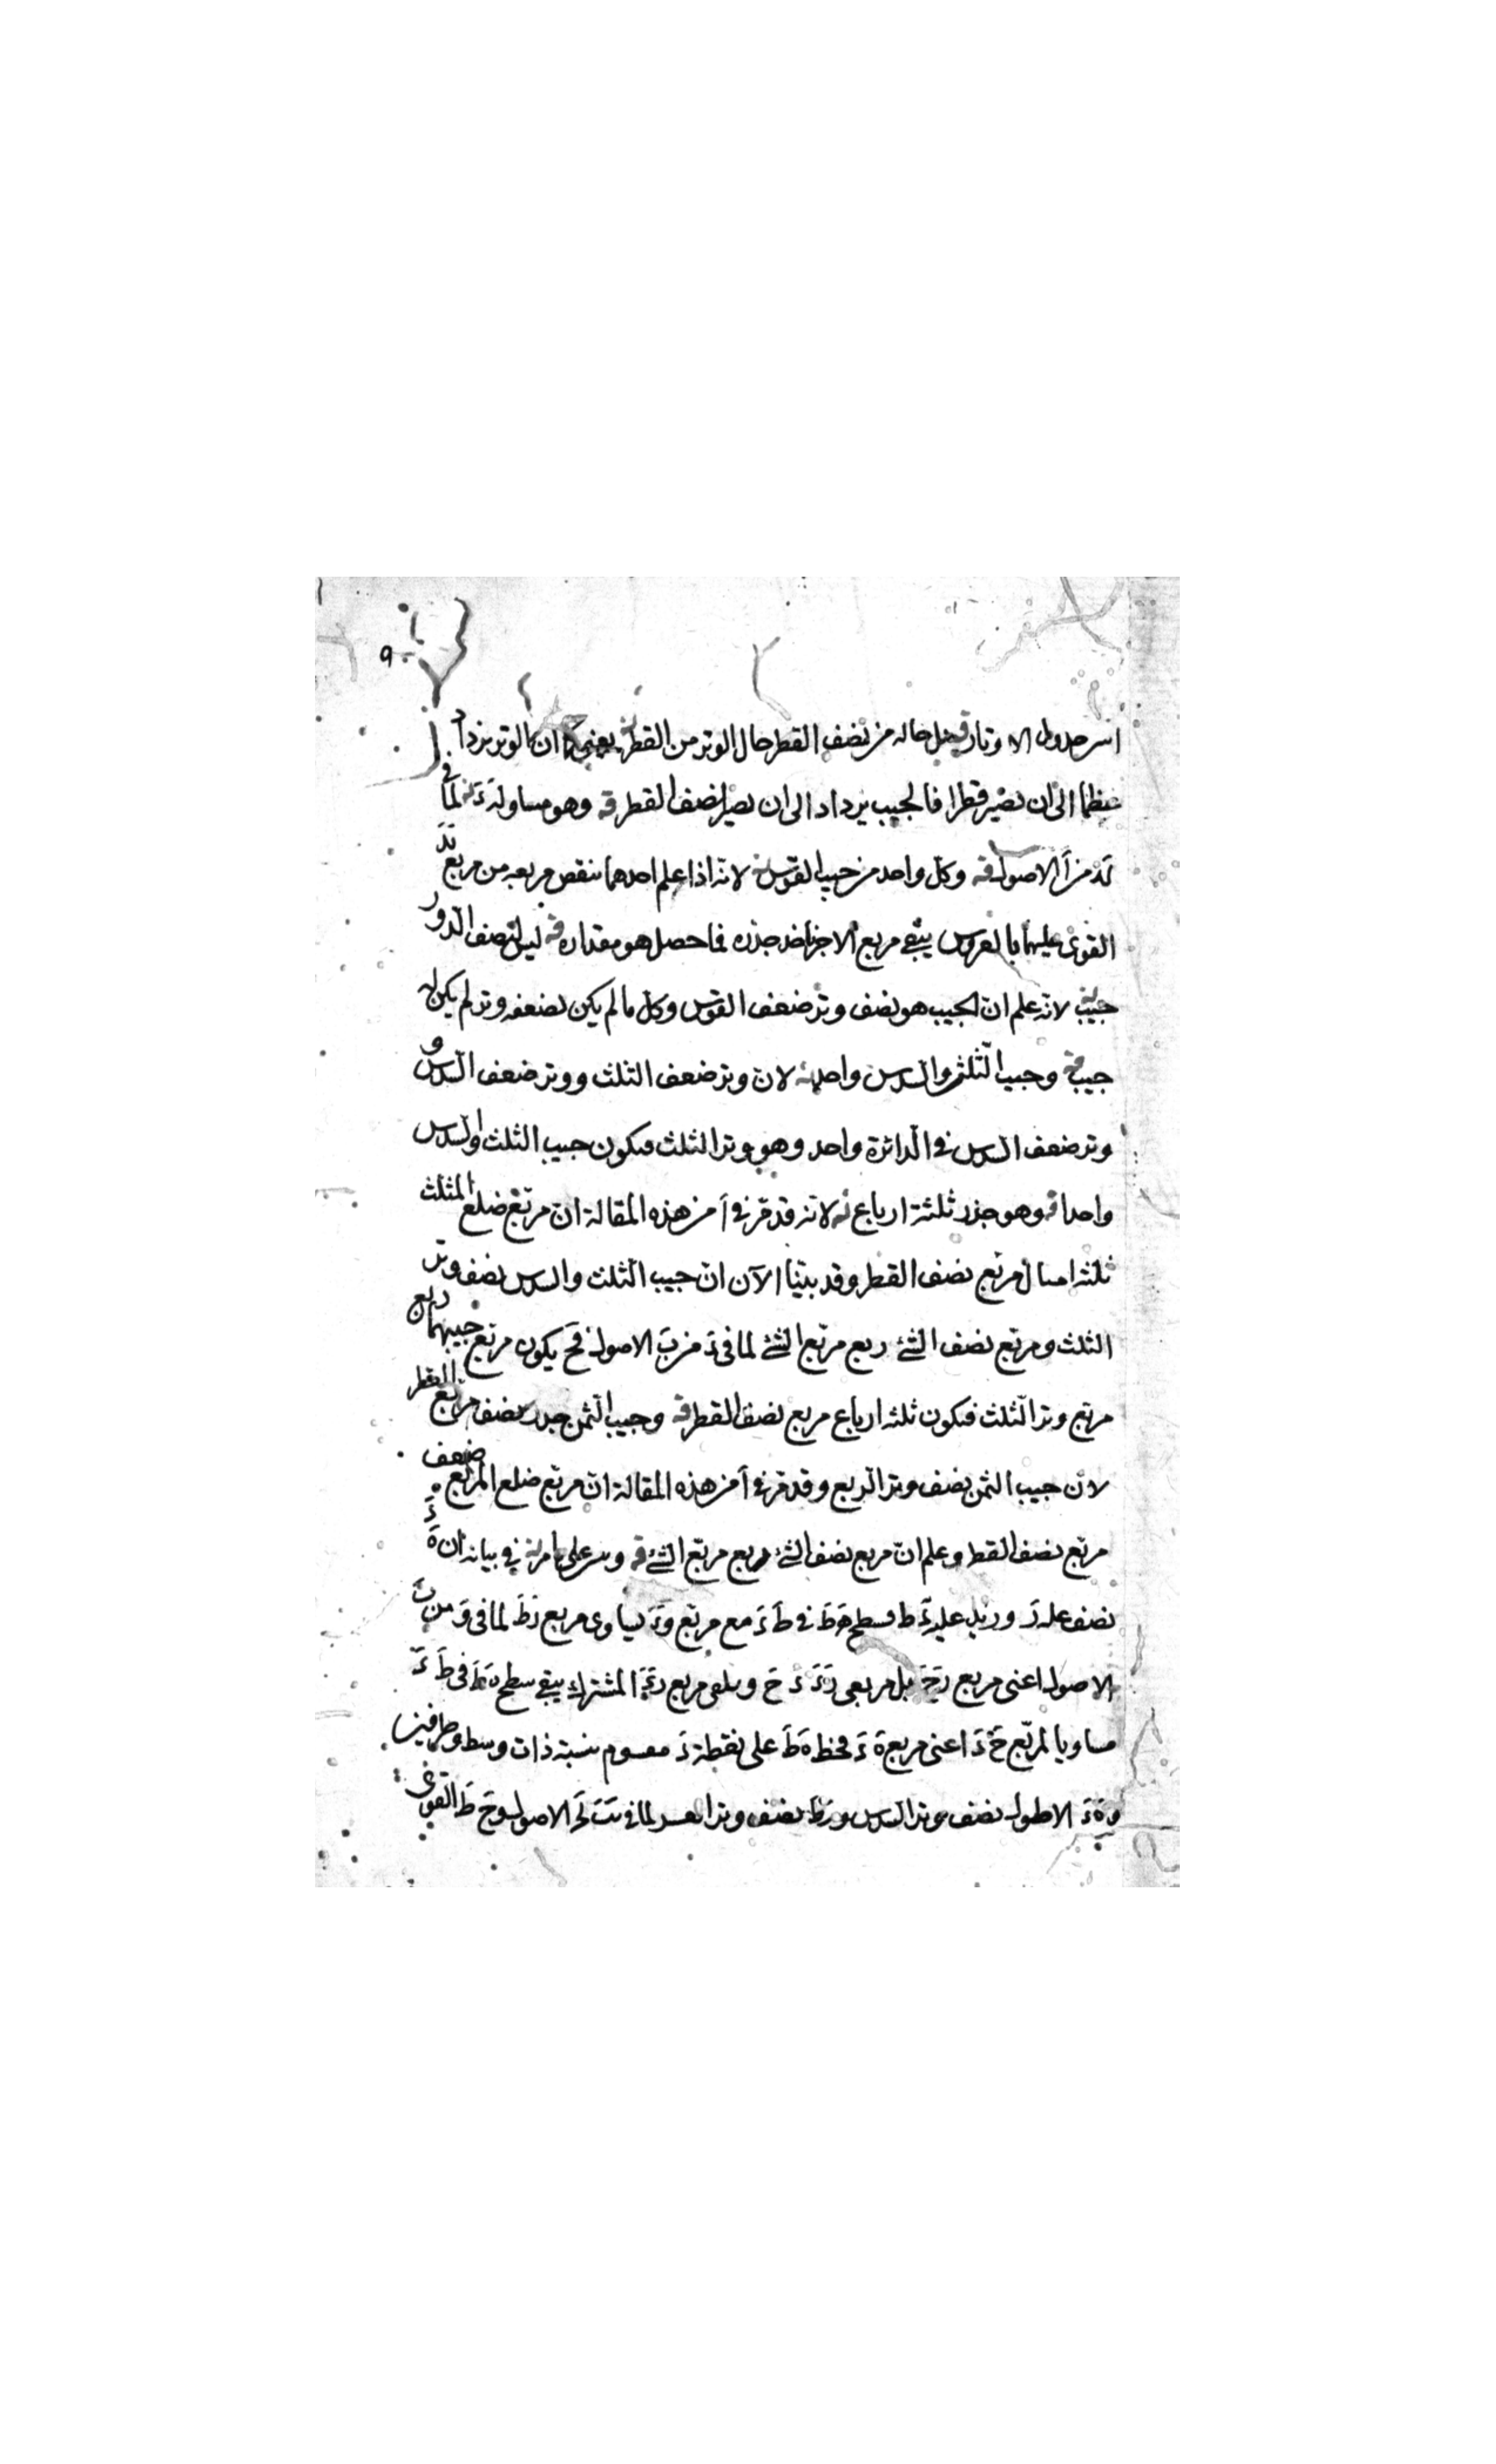 ٩
الاوتار حاله من نصف القطر حال الوتر من القطر يعنى كما ان الوتر يزداد
عظما الى ان يصير قطرا فالجيب يزداد الى ان يصير نصف القطر قه وهو مساو لـه لما فى
من آ الاصول قه وكل واحد من جيب القوس لانه اذا علم احدهما ينقص مربعه من مربع
القوى عليهما بالعروس يبقى مربع الاخر جذره فما حصل هو مقداره قه ليس لنصف الدور
جيب لانه علم ان الجيب هو نصف وتر ضعف القوس وكل ما لم يكن لضعفه وتر لم يكن له
جيب قه وجيب الثلث والسدس واحد لان وتر ضعف الثلث ووتر ضعف السدس و
وتر ضعف السدس فى الدائرة واحد وهو وتر الثلث فيكون جيب الثلث والسدس
واحدا قه وهو جذر ثلثة ارباع لانه قد مر فى آ من هذه المقالة ان مربع ضلع المثلث
ثلثة امثال مربع نصف القطر وقد بينا الآن ان جيب الثلث والسدس نصف وتر
الثلث ومربع نصف الشئ ربع مربع الشئ لما فى د من ب الاصول فح يكون مربع جيبهما ربع
مربع وتر الثلث فيكون ثلثه ارباع مربع نصف القطر قه وجيب الثمن جذر نصف مربع القطر
لان جيب الثمن نصف وتر الربع وقد مر فى آ من هذه المقالة ان مربع ضلع المربع ضعف
مربع نصف القطر وعلم ان مربع نصف الشئ ربع مربع الشئ قه فى بيانه ان ه د
نصف على ز ونزيد عليه د ط فسطح ه ط فى ط د مع مربع ز د يساوى مربع ز ط لما فى و من ب
الاصول اعنى مربع ز ح بل مربعى ز د د ح ونلقى مربع ز د المشترك يبقى سطح ه ط فى ط د
مساويا لمربع ح د اعنى مربع ه د فخط ه ط على نقطة د مقسوم بنسبة ذات وسط وطرفين
و ه د الاطول نصف وتر السدس و د ط نصف وتر العشر لما فى الاصول و ح ط القوى